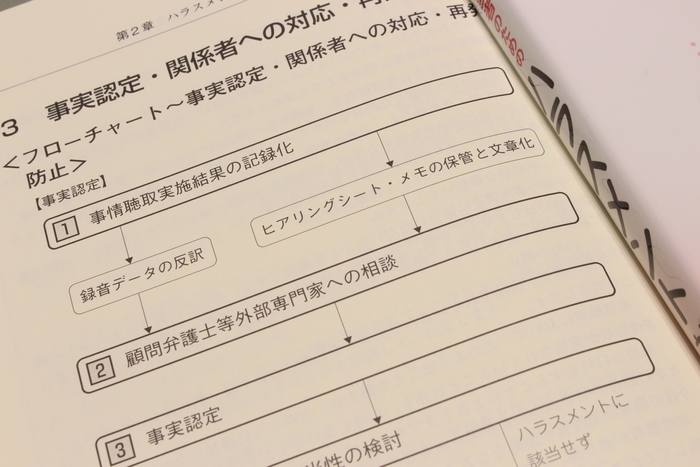 第2章 ハラスメ
3 事実認定・関係者への対応・再
<フローチャート〜事実認定・関係者への対応・再発
防止>
【事実認定】
1 事情聴取実施結果の記録化
ヒアリングシート・メモの保管と文章化
録音データの反訳
2 顧問弁護士等外部専門家への相談
3 事実認定
当性の検討
ハラスメントに
該当せず